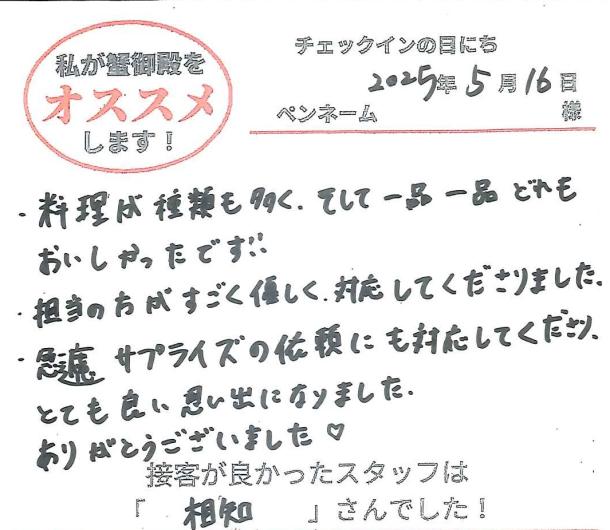 私が蟹御殿を
オススメ
します！
チェックインの日にち
2025年 5月 16日
ペンネーム 様
・料理が種類も多く、そして一品一品どれも
おいしかったです!!
・担当の方がすごく優しく、対応してくださりました。
・急遽サプライズの依頼にも対応してくださり、
とても良い思い出になりました。
ありがとうございました♡
接客が良かったスタッフは
「 相知 」さんでした！